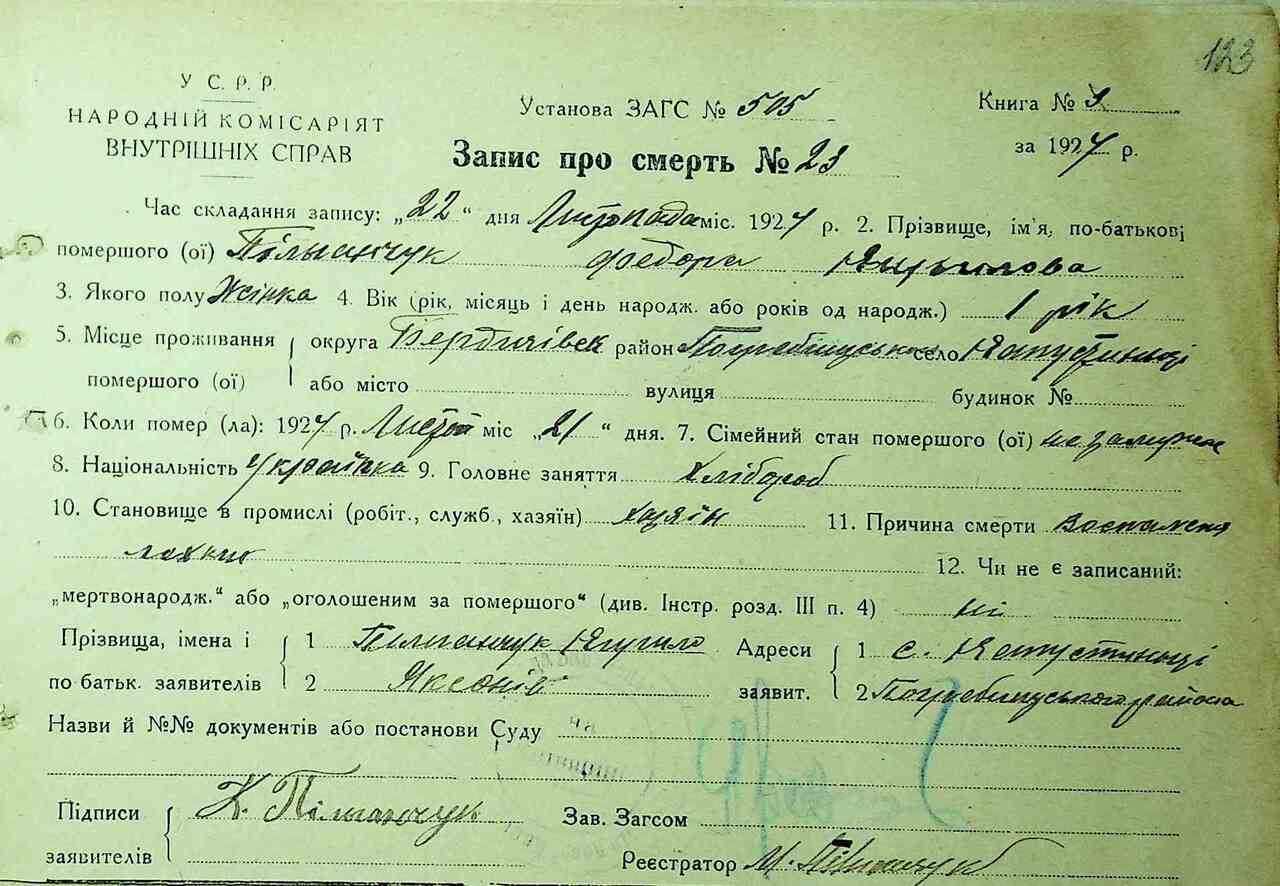 123
У С. Р. Р.
НАРОДНІЙ КОМІСАРІЯТ
ВНУТРІШНІХ СПРАВ
Установа ЗАГС № 505
Книга № 3
за 1927 р.
Запис про смерть № 23
Час складання запису: „22“ дня Листопада міс. 1927 р. 2. Прізвище, ім'я, по-батькові
помершого (ої) Пільганчук Федора Кирилова
3. Якого полу Жінка 4. Вік (рік, місяць і день народж. або років од народж.) 1 рік
5. Місце проживання округа Бердичівск район Погребищуського село Капустинці
помершого (ої) або місто вулиця будинок №
6. Коли помер (ла): 1927 р. Листоп міс „21“ дня. 7. Сімейний стан помершого (ої) не замужня
8. Національність Українка 9. Головне заняття Хлібороб
10. Становище в промислі (робіт., служб., хазяїн) хазяїн 11. Причина смерти Воспаленя
12. Чи не є записаний:
„мертвонародж.“ або „оголошеним за помершого“ (див. Інстр. розд. III п. 4) ні
Прізвища, імена і 1 Кирило Адреси 1 с. Капустинці
по батьк. заявителів 2 заявит. 2 Погребищуського района
Назви й №№ документів або постанови Суду
Підписи К.
Зав. Загсом
заявителів Реєстратор